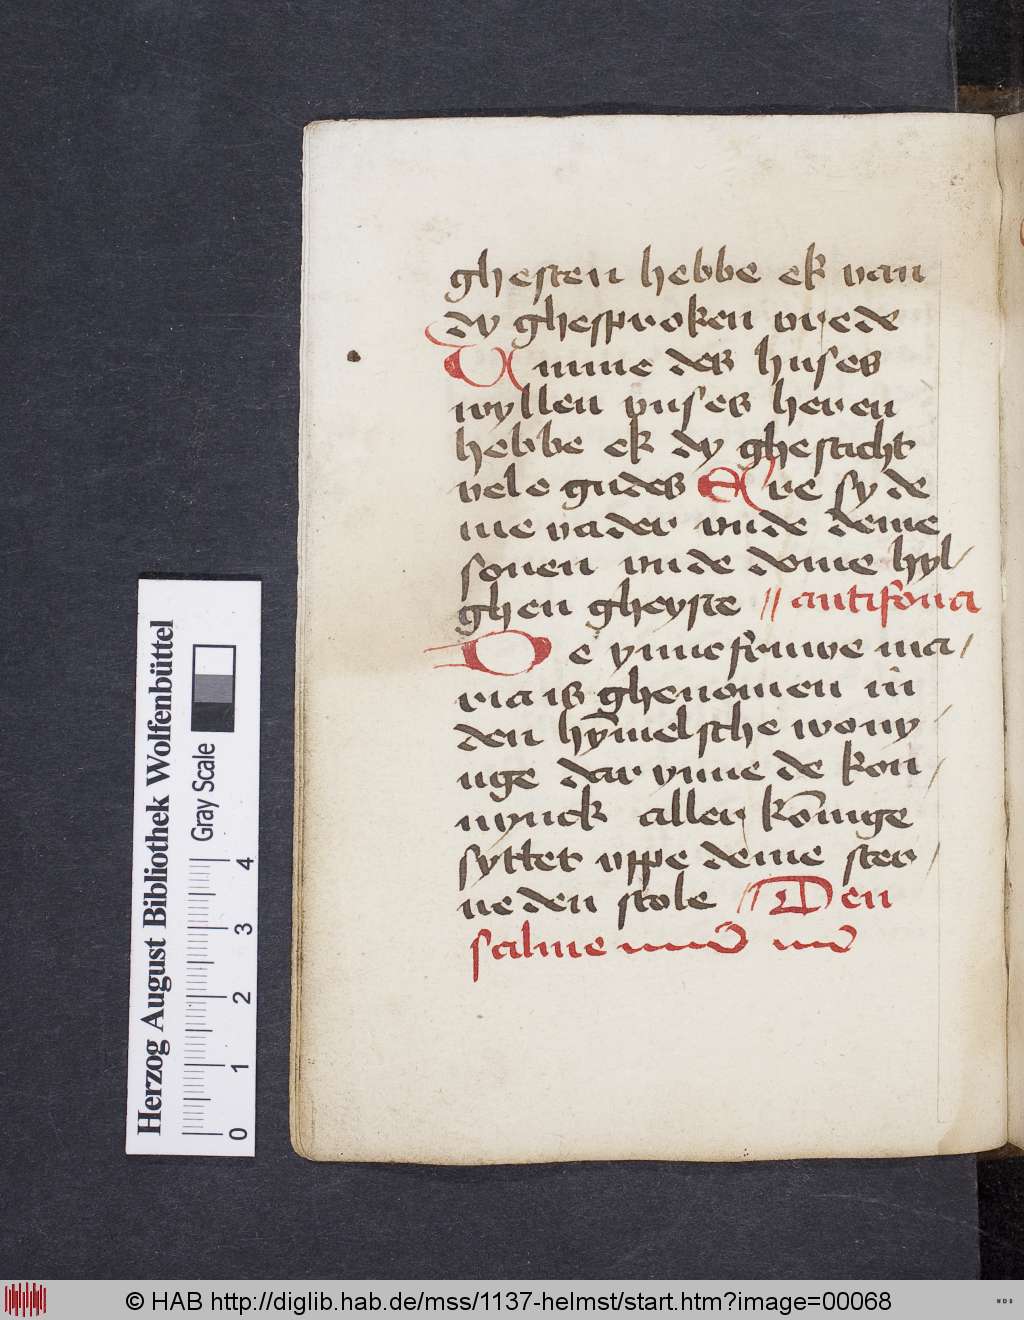 ghesten hebbe ek van
dy ghesproken vrede
Vmme des huses
wyllen vnses heren
hebbe ek dy ghesocht
vele gudes Ere sy de
me vader vnde deme
sonen vnde deme hyl-
ghen gheyste // antifona
De yuncfruwe ma-
ria is ghenomen in
den hȳmelsche wony-
nge dar ynne de kon-
nynck aller kōnige
syttet vppe deme ster-
neden stole // Den
salme
Herzog August Bibliothek Wolfenbüttel
Gray Scale
0 1 2 3 4
© HAB http://diglib.hab.de/mss/1137-helmst/start.htm?image=00068